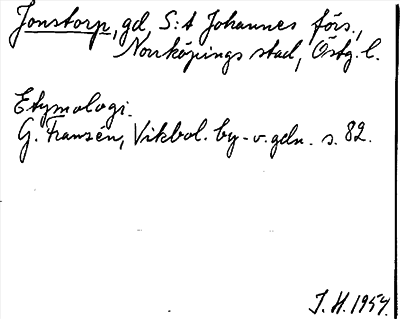 Jonstorp, gd, S:t Johannes förs.,
Norrköpings stad, Östg. l.
Etymologi.
G. Franzén, Vikbol. by- o. gdn. s. 82.
J. H. 1954.